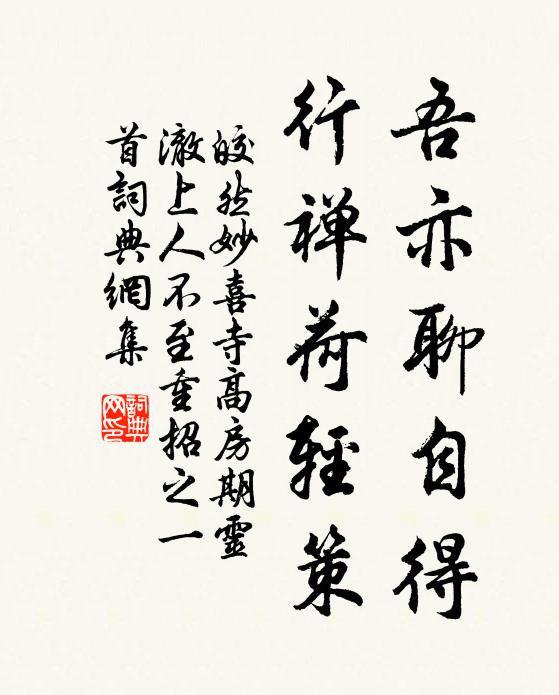 吾亦聊自得
行禅荷輕策
皎然妙喜寺高房期靈
澈上人不至重招之一
首詞典網集
詞典
网印